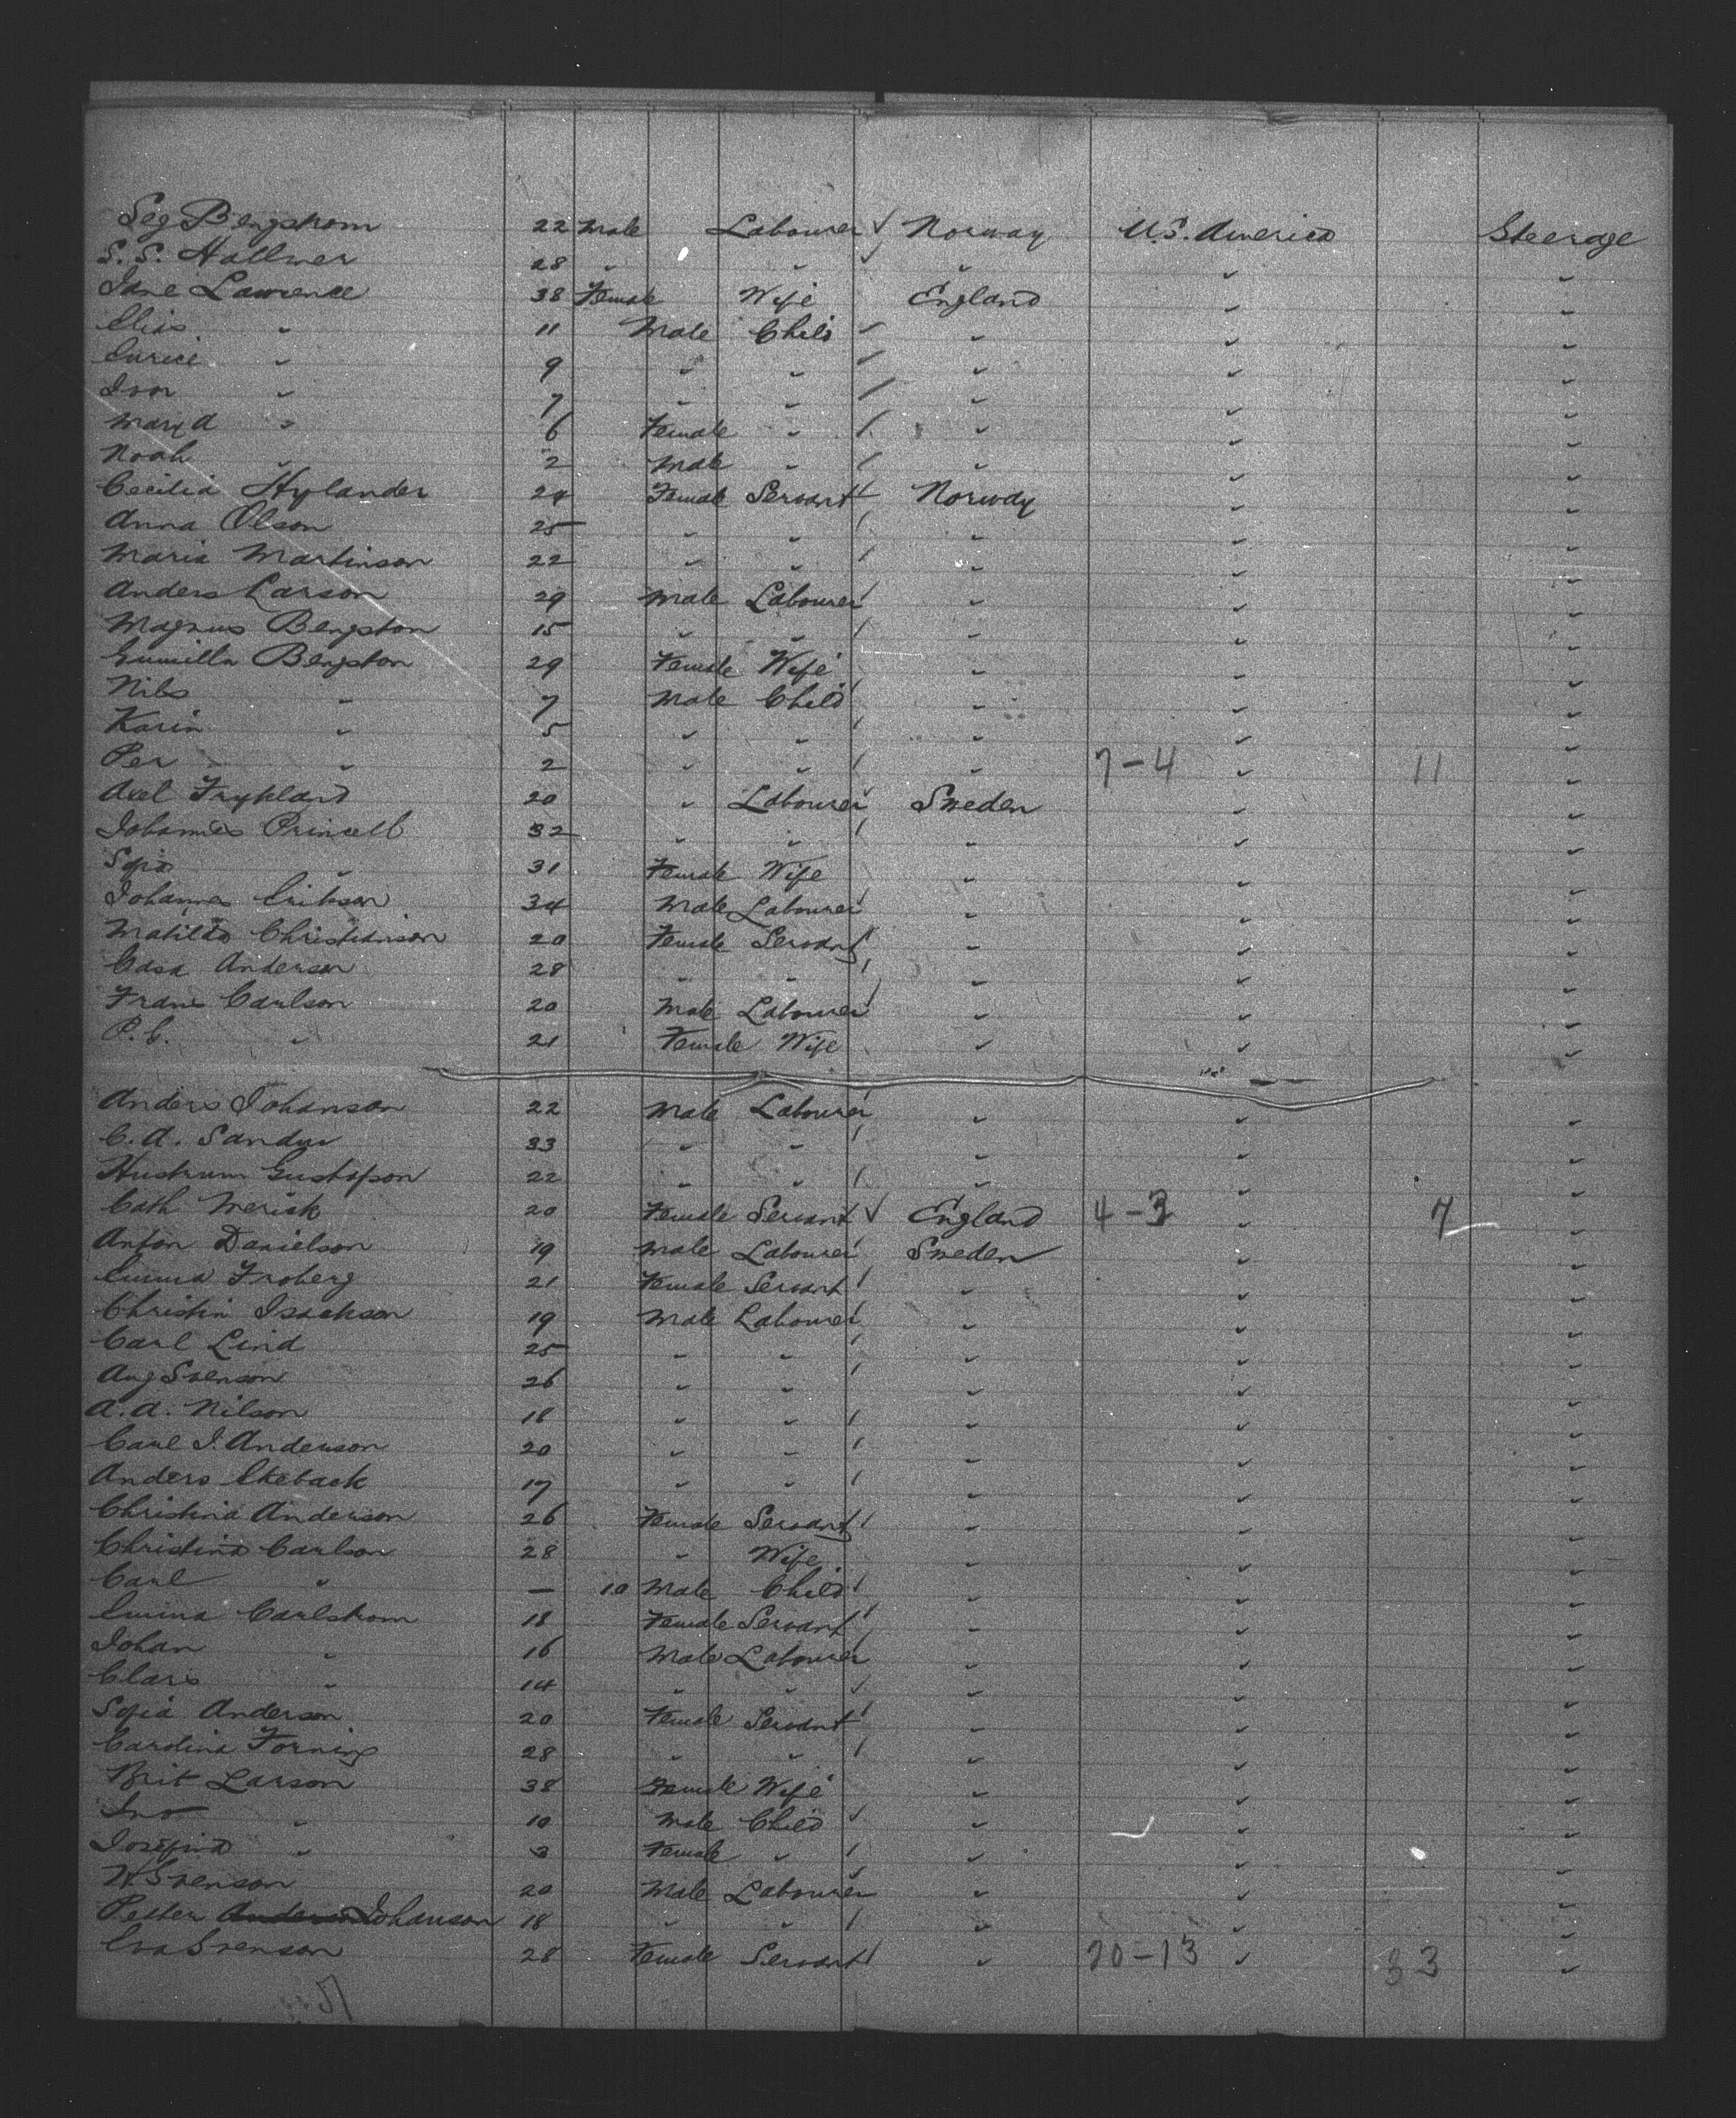 Seg Bengstrom 22 Male Labourer ✓ Norway U.S. America Steerage
S. S. Hallmer 28 " " ✓ " " "
Jane Lawrence 38 Female Wife England " "
Elias " 11 Male Child " " "
" 9 " " " " "
Ivor " 7 " " " " "
Mary A " 6 Female " " " "
Noah " 2 Male " " " "
Cecilia Hylander 24 Female Servant Norway " "
Anna Olson 25 " " " " "
Maria Martinson 22 " " " " "
Anders Larson 29 Male Labourer " " "
Magnus Bengston 15 " " " " "
Gunilla Bengston 29 Female Wife " " "
Nils " 7 Male Child " " "
Karin " 5 " " " " "
Per " 2 " " " 7-4 " 11 "
Axel Frykland 20 " Labourer Sweden " "
Johannes Princell 32 " " " " "
Sofia " 31 Female Wife " " "
Johannes Erikson 34 Male Labourer " " "
Matilda Christianson 20 Female Servant " " "
Casa Anderson 28 " " " " "
Frans Carlson 20 Male Labourer " " "
P. C. " 21 Female Wife " " "
Anders Johanson 22 Male Labourer " " "
C. A. Sander 33 " " " " "
Gustafson 22 " " " " "
Cath Merick 20 Female Servant ✓ England 4-3 " 7 "
Anton Danielson 19 Male Labourer Sweden " "
Emma Froberg 21 Female Servant " " "
Christin Isackson 19 Male Labourer " " "
Carl Lind 25 " " " " "
Aug Svenson 26 " " " " "
A. A. Nilson 18 " " " " "
Carl J. Anderson 20 " " " " "
Anders Ekeback 17 " " " " "
Christina Anderson 26 Female Servant " " "
Christina Carlson 28 " Wife " " "
Carl " — 10 Male Child " " "
Emma Carlstrom 18 Female Servant " " "
Johan " 16 Male Labourer " " "
Clars " 14 " " ✓ " " "
Sofia Anderson 20 Female Servant " " "
Carolina Forning 28 " " " " "
Brit Larson 38 Female Wife " " "
" 10 Male Child ✓ " " "
Josefina " 3 Female " " " "
N. Svenson 20 Male Labourer " " "
Petter Johanson 18 " " " " "
Eva Svenson 28 Female Servant " 20-13 " 33 "